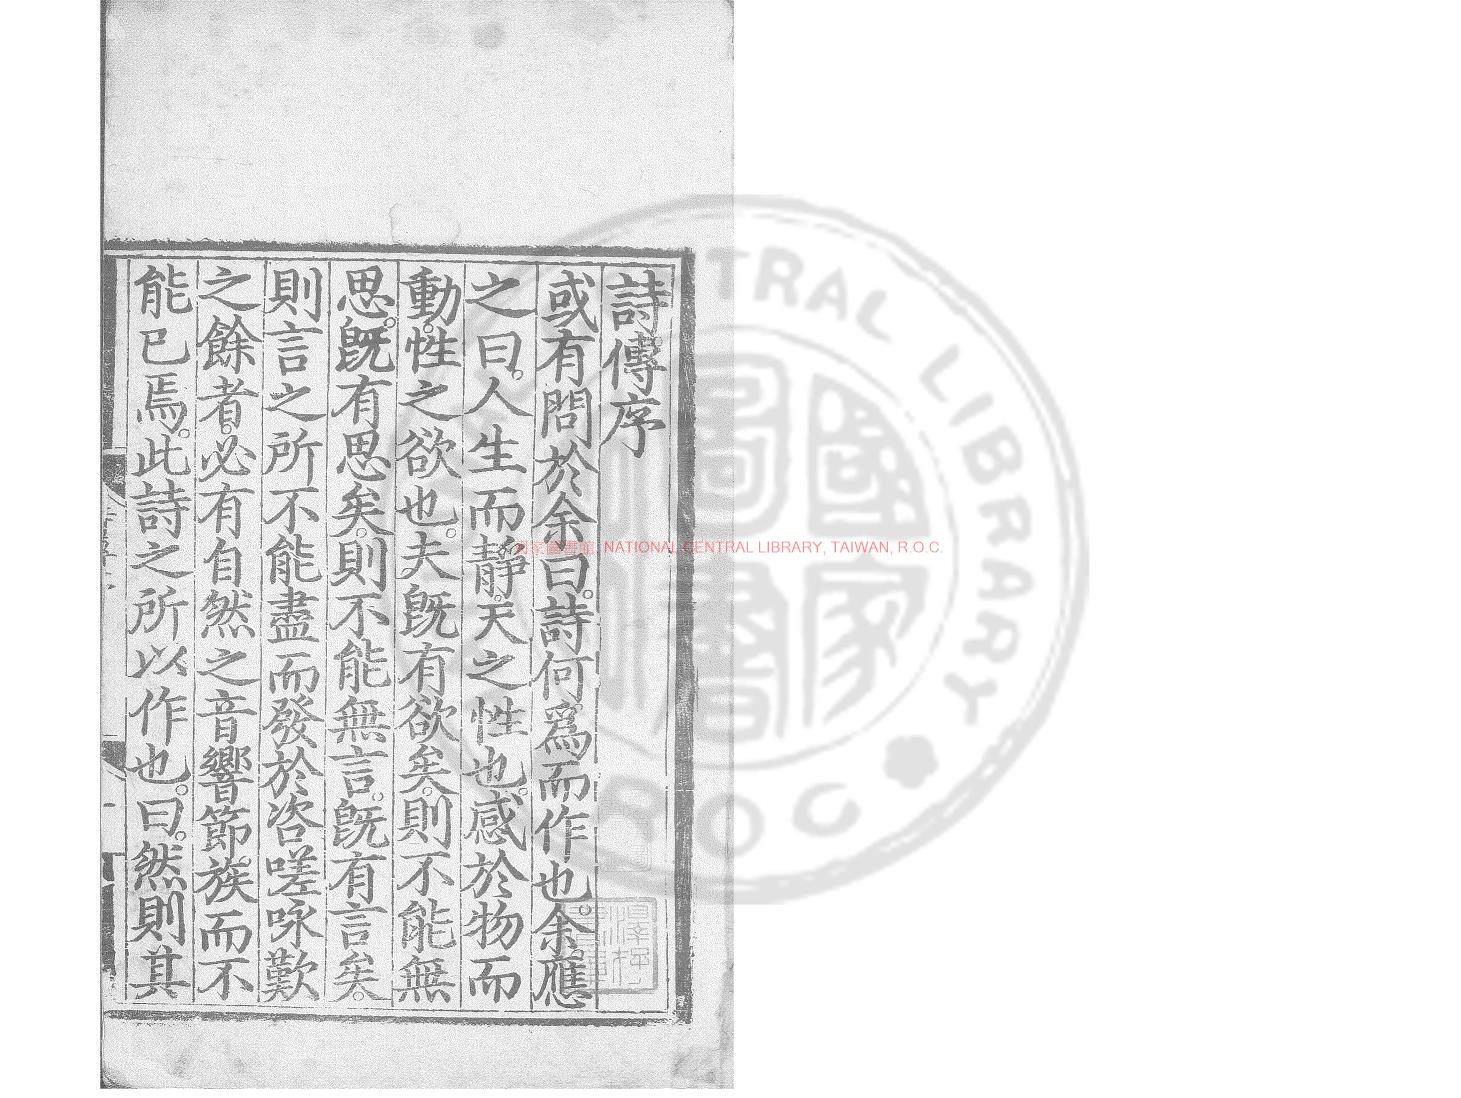 詩傳序
或有問於余曰。詩何爲而作也。余應
之曰。人生而靜。天之性也。感於物而
動。性之欲也。夫旣有欲矣。則不能無
思。旣有思矣。則不能無言。旣有言矣。
則言之所不能盡而發於咨嗟咏歎
之餘者。必有自然之音響節族而不
能已焉。此詩之所以作也。曰。然則其
國家圖書館, NATIONAL CENTRAL LIBRARY, TAIWAN, R.O.C.
TRAL LIBRARY
R.O.C
國家圖書